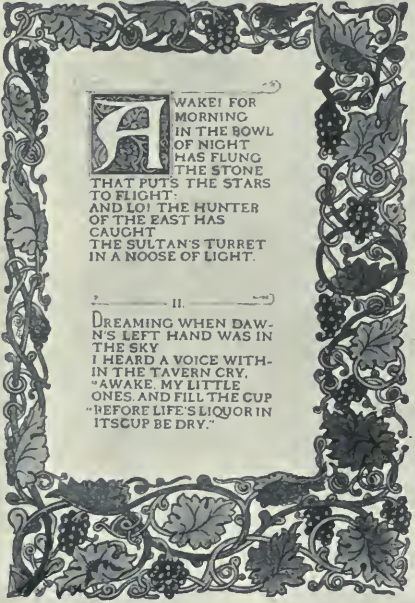 AWAKE! FOR
MORNING
IN THE BOWL
OF NIGHT
HAS FLUNG
THE STONE
THAT PUTS THE STARS
TO FLIGHT:
AND LO! THE HUNTER
OF THE EAST HAS
CAUGHT
THE SULTAN'S TURRET
IN A NOOSE OF LIGHT.
II.
DREAMING WHEN DAW-
N'S LEFT HAND WAS IN
THE SKY
I HEARD A VOICE WITH-
IN THE TAVERN CRY,
"AWAKE, MY LITTLE
ONES, AND FILL THE CUP
"BEFORE LIFE'S LIQUOR IN
ITS CUP BE DRY."